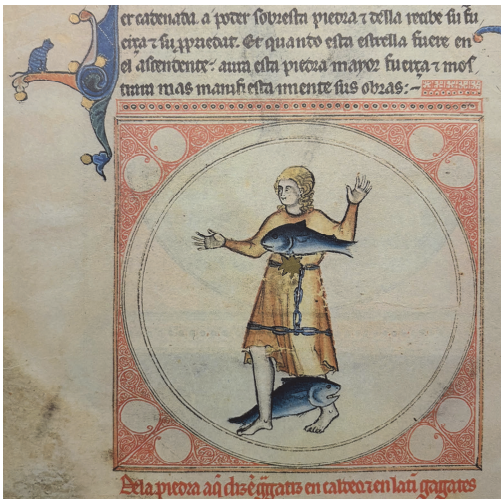 er cadenada. a poder sobresta piedra ⁊ della recibe su fu
eiça ⁊ su propriedat. Et quanto esta estrella fuere en
el ascendente: aura esta piedra mayor fuerça ⁊ mos
trara mas manifestamiente sus obras:~
De la piedra aq̃ dizẽ gagatiz en caldeo ⁊ en latĩ gagates